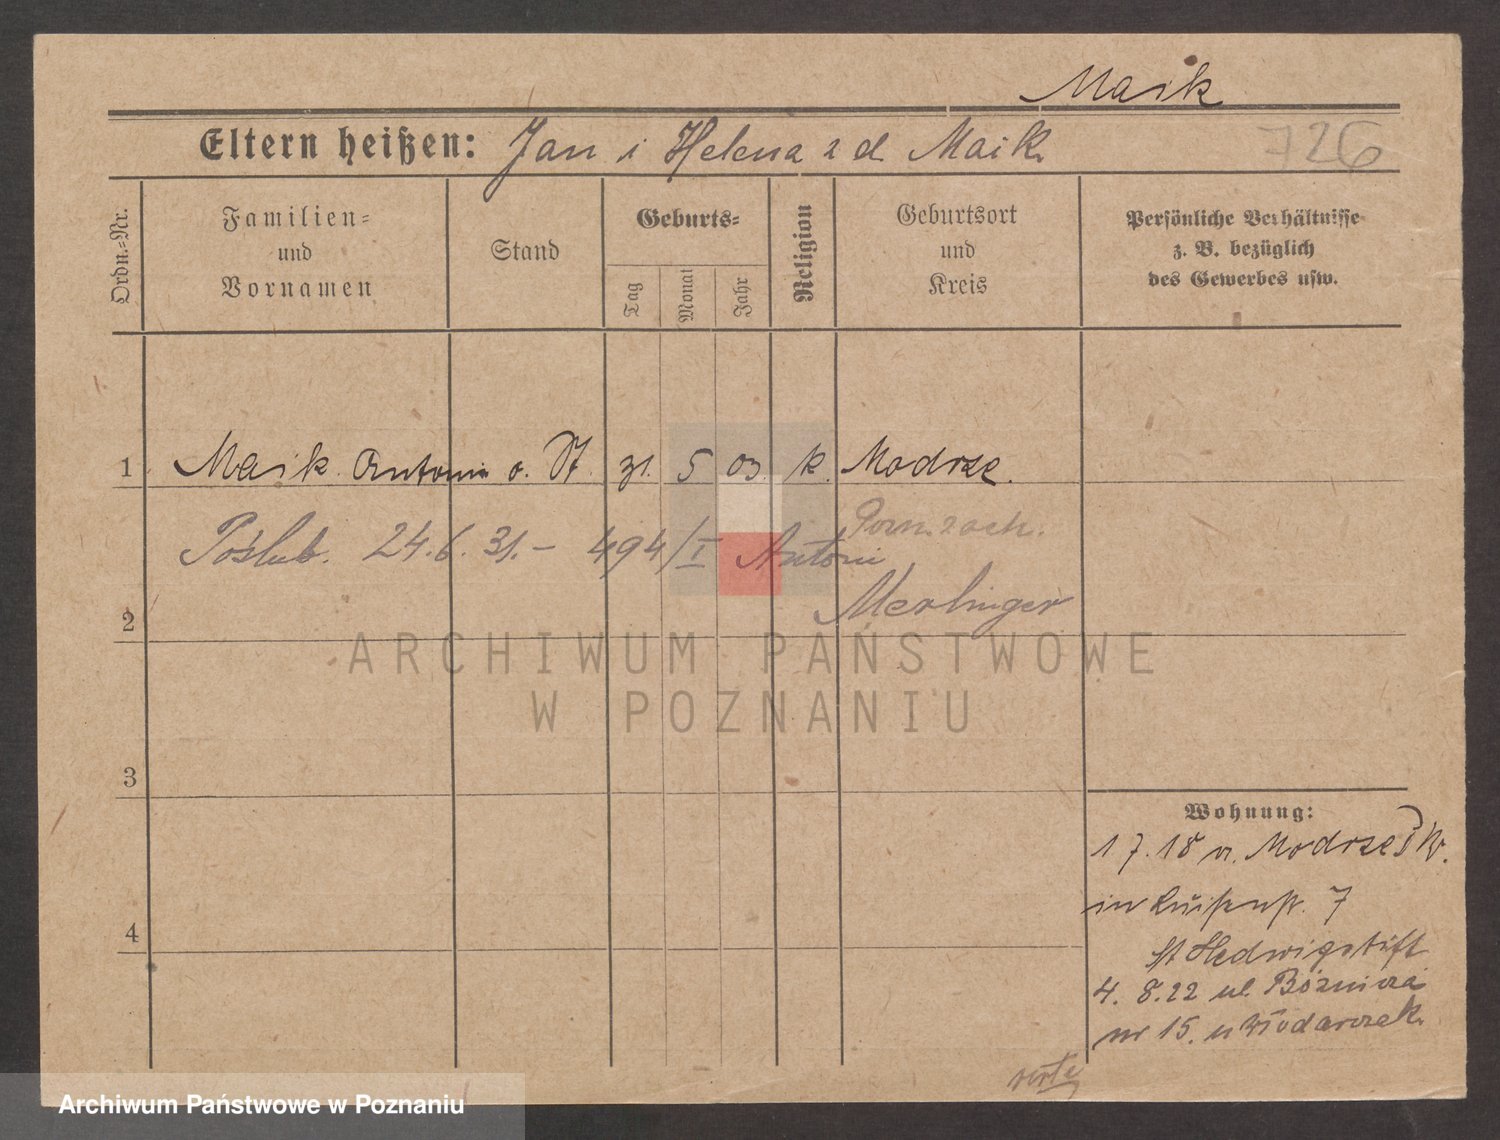 Maik
Eltern heißen: Jan i Helena z d Maik.
726
Ordn.-Nr.
Familien-
und
Vornamen
Stand
Geburts-
Tag
Monat
Jahr
Religion
Geburtsort
und
Kreis
Persönliche Verhältnisse
z. B. bezüglich
des Gewerbes usw.
1 Maik Antonin o. St. 31. 5 03. k. Modrze.
Pozn. zach.
Poślub. 24.6.31.- 494/I Antoni
Merlinger
2
ARCHIWUM PAŃSTWOWE
W POZNANIU
3
4
Wohnung:
17.18 v. Modrze
in Luisenstr. 7
St Hedwigstift
4. 8.22 ul. Bóżnicza
nr 15. u Włodarczak.
verte
Archiwum Państwowe w Poznaniu